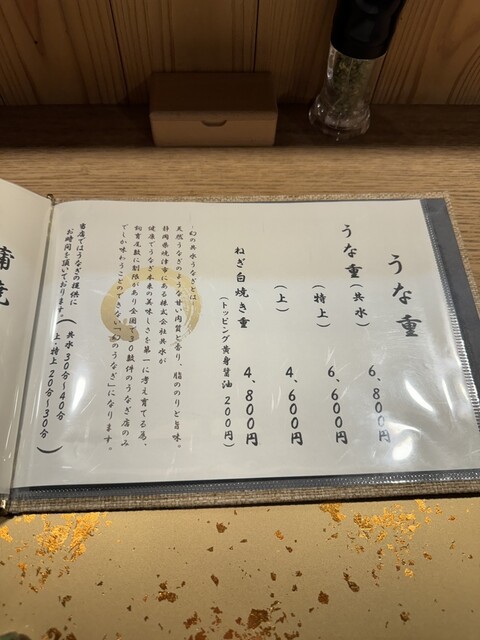 うな重
うな重（共水） 6,800円
（特上） 6,600円
（上） 4,600円
ねぎ白焼き重 4,800円
（トッピング黄身醤油 200円）
幻の共水うなぎとは、
天然うなぎのような甘い肉質と香り、脂ののりと旨味。
静岡県焼津市にある株式会社共水が
健康でうなぎ本来の美味しさを第一に考え育てる為、
飼育尾数に制限があり全国で30数件のうなぎ店のみ
でしか味わうことのできない「幻のうなぎ」になります。
当店ではうなぎの提供に
お時間を頂いております。
（共水 30分〜40分
上・特上 20分〜30分）
蒲焼